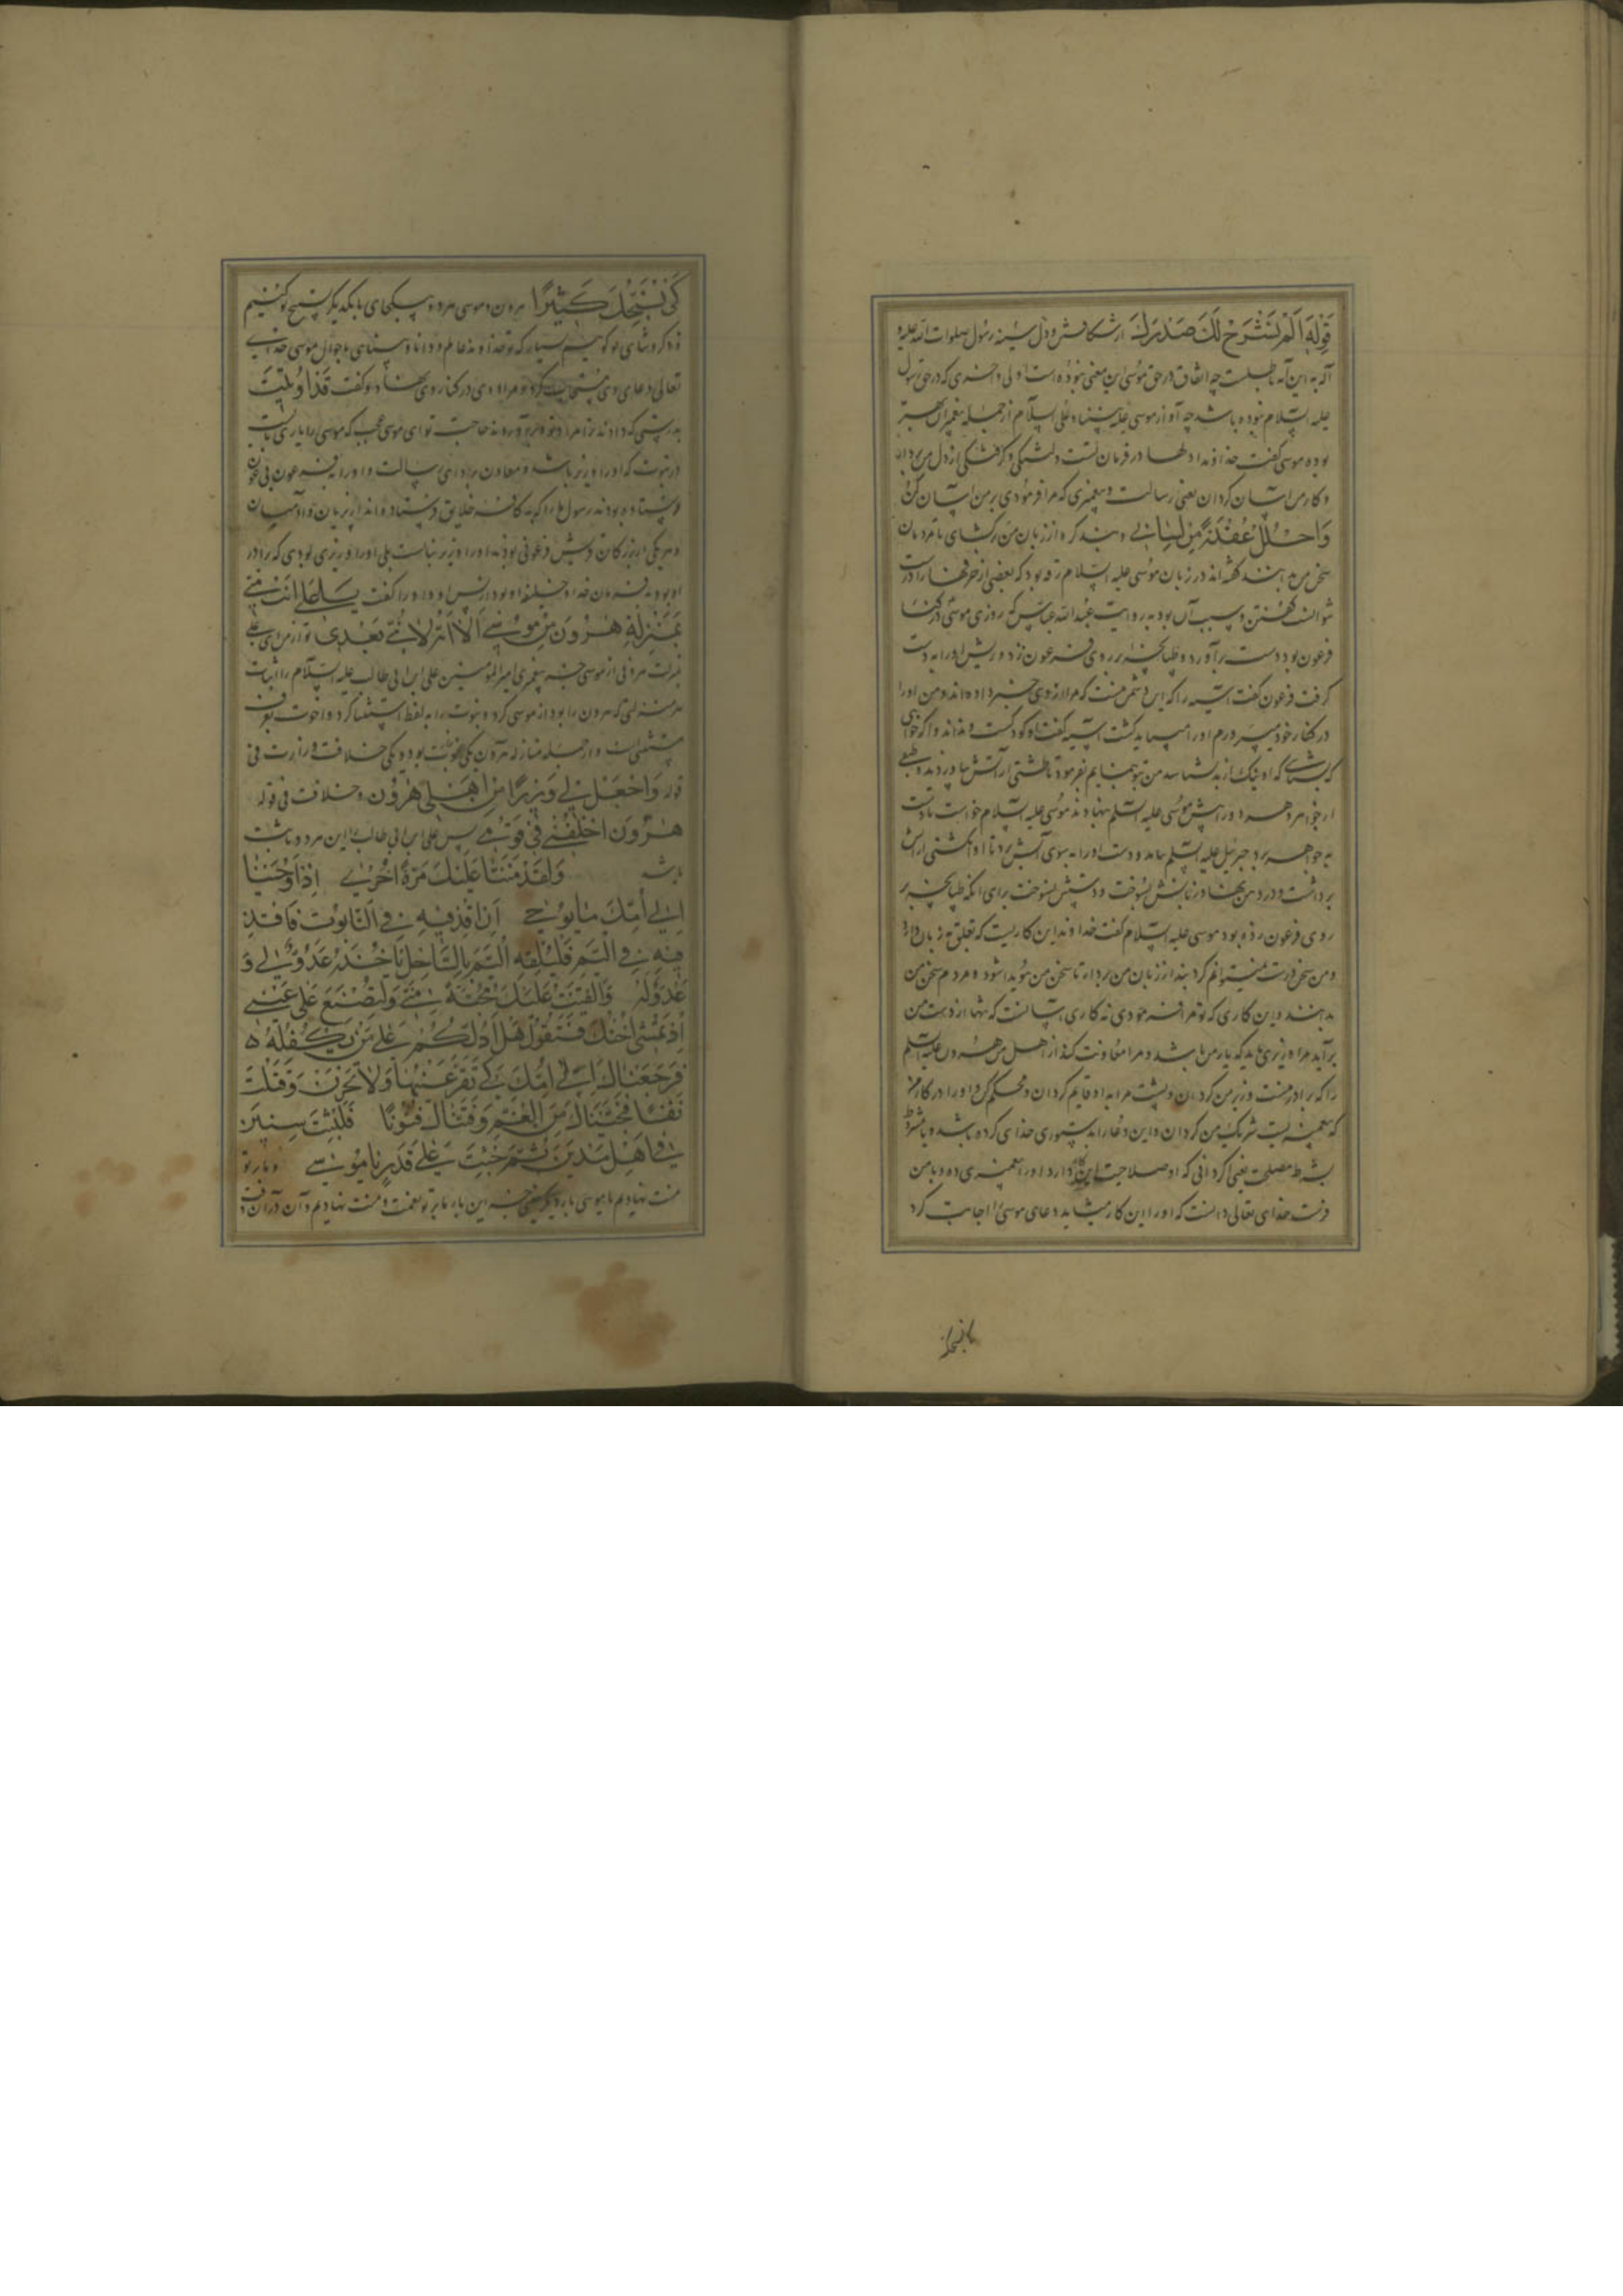 قوله اَلَمْ نَشْرَحْ لَكَ صَدْرَكَ از شکافتن دل و سینه رسول صلوات الله علیه و
آله به این آیه باطلست چه اتفاق در حق موسی این معنی نبوده است اولی و اخری که در حق رسول
علیه السلام نبوده باشد چه او از موسی علی نبینا و علیه السلام از جمله پیغمبران بهتر
بوده موسی گفت خداوندا دلها در فرمان تست دلتنگی و گرفتگی از دل من بردار
و کار من آسان گردان یعنی رسالت و پیغمبری که مرا فرمودی بر من آسان کن
وَاحْلُلْ عُقْدَةً مِنْ لِسَانِی و بند گره از زبان من برگشای تا مردمان
سخن من بدانند گفته‌اند در زبان موسی علیه السلام رته بود که بعضی از حرفها را درست
نتوانست گفتن و سبب آن بود به روایت عبدالله عباس که روزی موسی در کنار
فرعون بود دست برآورد و طپانچه بر روی فرعون زد و ریش او را به دست
گرفت فرعون گفت آسیه را که این دشمن منست که مرا از وی خبر داده‌اند و من او را
در کنار خود می‌پرورم او را می‌باید کشت آسیه گفت او کودکست و نداند و اگر خواهی
که بدانی که او نیک از بد نشناسد من بتو بنمایم بفرمود تا طشتی از آتش بیاوردند و طبقی
از جواهر و هر دو در پیش موسی علیه السلم بنهادند موسی علیه السلام خواست تا دست
به جواهر برد جبرئیل علیه السلم بیامد و دست او را به سوی آتش برد تا او انگشتی از آتش
برداشت و در دهن نهاد زبانش بسوخت و دستش نسوخت برای آنکه طپانچه بر
روی فرعون زده بود موسی علیه السلام گفت خداوندا این کاریست که تعلق به زبان دارد
و من سخن درست نمیتوانم کرد بند از زبان من بردار تا سخن من هویدا شود و مردم سخن من
بدانند و این کاری که تو مرا فرمودی نه کاری آسانست که تنها از دست من
برآید مرا وزیری باید که یار من باشد و مرا معاونت کند از اهل من هرون علیه السلم
را که برادر منست وزیر من گردان و پشت مرا به او قایم گردان و محکم کن و او را در کار من
که پیغمبریست شریک من گردان و این دعا را به دستوری خدای کرده باشد و یا بشرط
بشرط مصلحت یعنی اگر دانی که او صلاحیت این کار دارد او را پیغمبری ده و با من
فرست خدای تعالی دانست که او را این کار میشاید دعای موسی را اجابت کرد
کَیْ نُسَبِّحَكَ كَثِیرًا هرون و موسی هر دو بیکجای با یکدیگر تسبیح تو کنیم
و ذکر و ثنای تو گوییم بسیار که تو خداوند عالم و دانا و بینایی به احوال موسی خدای
تعالی دعای وی مستجاب کرد و مراد وی در کنار وی نهاد و گفت قَدْ اُوتِیتَ
بدرستی که دادند ترا مراد تو و برآوردند حاجت تو ای موسی عجب که موسی را یاری بایست
در نبوت که او را وزیر باشد و معاون بر ادای رسالت و او را به فرعون
فرستاده بودند رسول ما را که به کافه خلایق فرستاده‌اند از پریان و آدمیان
و هر یکی از بزرگان قریش فرعونی بودند او را وزیر نبایست بلی او را وزیری بودی که برادر
او بود به فرمان خدا و خلیفه او بود از پس او و او را گفت یَا عَلِی اَنْتَ مِنِّی
بِمَنْزِلَةِ هٰرُونَ مِنْ مُوسٰی اِلَّا اَنَّهُ لَا نَبِیَّ بَعْدِی تو از من ای علی
بمنزلت هرونی از موسی جز پیغمبری امیر المومنین علی ابن ابی طالب علیه السلام را اثبات
هر منزلتی که هرون را بود از موسی کرد و نبوت را به لفظ استثنا کرد و اخوت بعرف
مستثنی است و از جمله منازل هرون یکی محبت بود و یکی خلافت وزارت فی
قوله وَاجْعَلْ لِی وَزِیرًا مِنْ اَهْلِی هٰرُونَ و خلافت فی قوله
هٰرُونَ اخْلُفْنِی فِی قَوْمِی پس علی ابن ابی طالب را این هر دو ثابت
باشد وَلَقَدْ مَنَنَّا عَلَیْكَ مَرَّةً اُخْرٰی اِذْ اَوْحَیْنَا
اِلٰی اُمِّكَ مَا یُوحٰی اَنِ اقْذِفِیهِ فِی التَّابُوتِ فَاقْذِ
فِیهِ فِی الْیَمِّ فَلْیُلْقِهِ الْیَمُّ بِالسَّاحِلِ یَأْخُذْهُ عَدُوٌّ لِی وَ
عَدُوٌّ لَهُ وَاَلْقَیْتُ عَلَیْكَ مَحَبَّةً مِنِّی وَلِتُصْنَعَ عَلٰی عَیْنِی
اِذْ تَمْشِی اُخْتُكَ فَتَقُولُ هَلْ اَدُلُّكُمْ عَلٰی مَنْ یَكْفُلُهُ
فَرَجَعْنَاكَ اِلٰی اُمِّكَ كَیْ تَقَرَّ عَیْنُهَا وَلَا تَحْزَنَ وَقَتَلْتَ
نَفْسًا فَنَجَّیْنَاكَ مِنَ الْغَمِّ وَفَتَنَّاكَ فُتُونًا فَلَبِثْتَ سِنِینَ
فِی اَهْلِ مَدْیَنَ ثُمَّ جِئْتَ عَلٰی قَدَرٍ یَا مُوسٰی و بار تو
منت نهادیم یا موسی بار دیگر یعنی جز این بار ما بر تو نعمت و منت نهادیم و آن در آن وقت